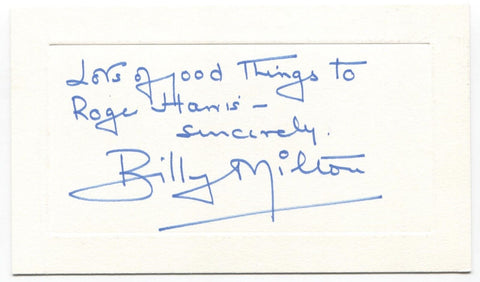 Lots of good Things to
Roger Harris –
sincerely.
Billy Milton